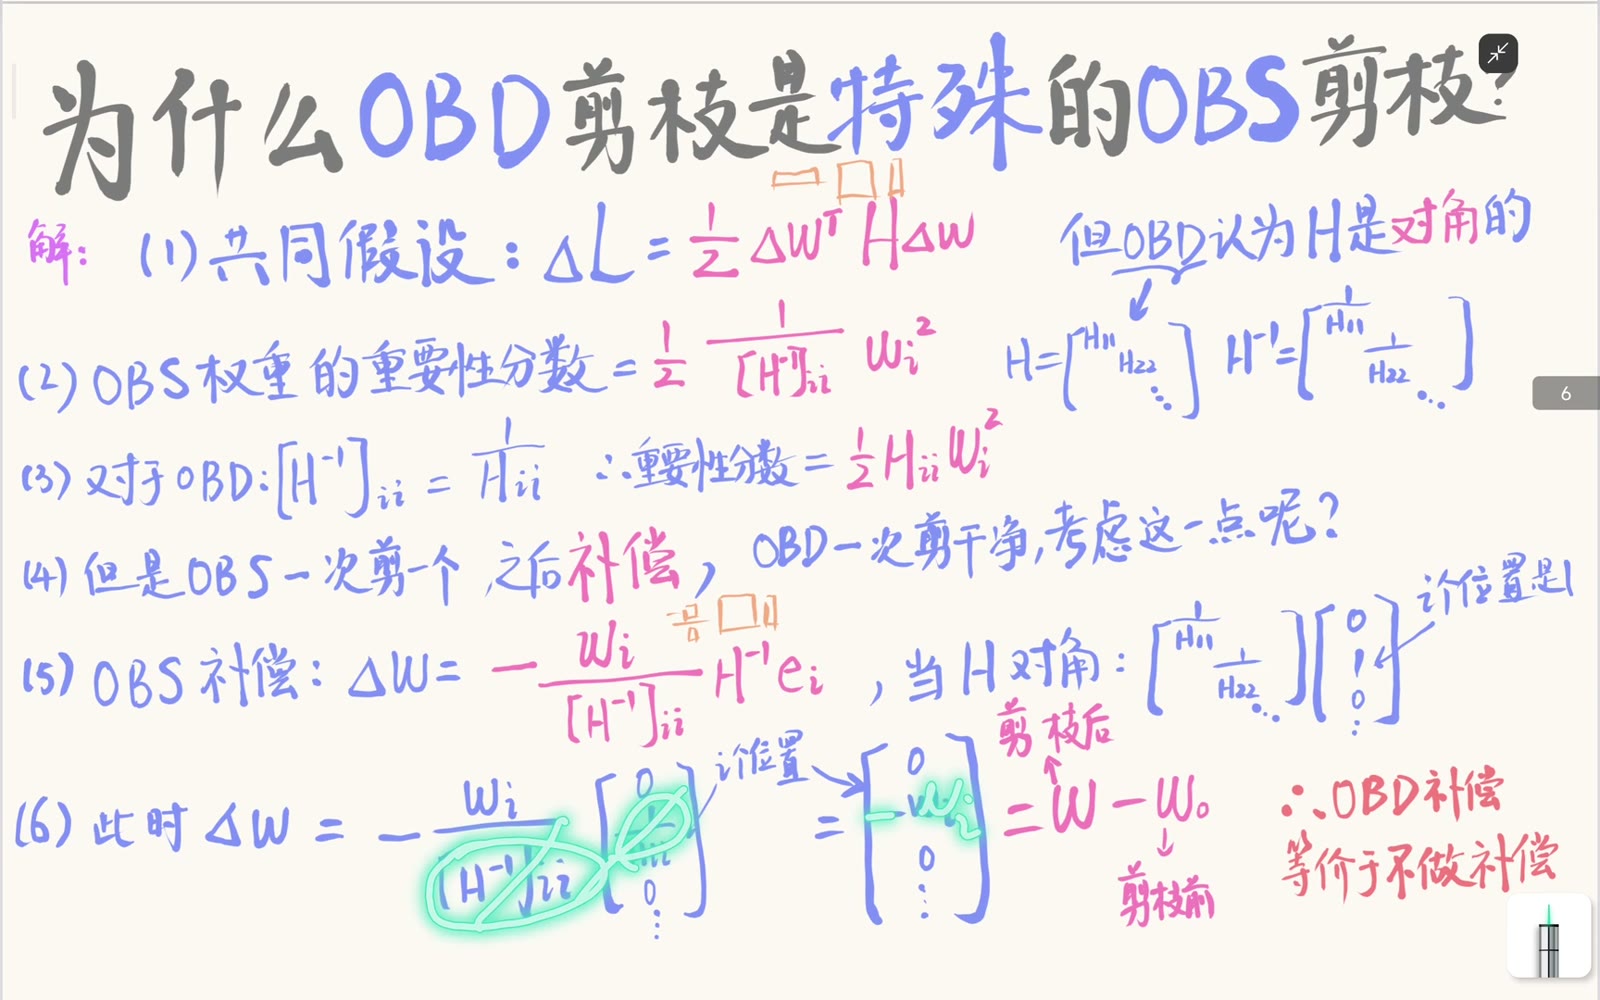 为什么OBD剪枝是特殊的OBS剪枝?
解: (1)共同假设: ΔL = 1/2 ΔW^T H ΔW
但OBD认为H是对角的
(2) OBS权重的重要性分数 = 1/2 1/[H^-1]ii Wi^2
H=[H11 H22 ⋱] H^-1=[1/H11 1/H22 ⋱]
(3) 对于OBD: [H^-1]ii = 1/Hii ∴重要性分数 = 1/2 Hii Wi^2
(4) 但是OBS一次剪一个 之后补偿, OBD一次剪干净,考虑这一点呢?
i个位置是1
(5) OBS补偿: ΔW = - Wi/[H^-1]ii H^-1 ei , 当H对角: [1/H11 1/H22 ⋱] [0 1 0 ⋮]
剪枝后
i个位置
(6) 此时 ΔW = - Wi/[H^-1]ii [0 1/Hii 0 ⋮] = [0 -Wi 0 ⋮] = W - W0
剪枝前
∴OBD补偿
等价于不做补偿
6